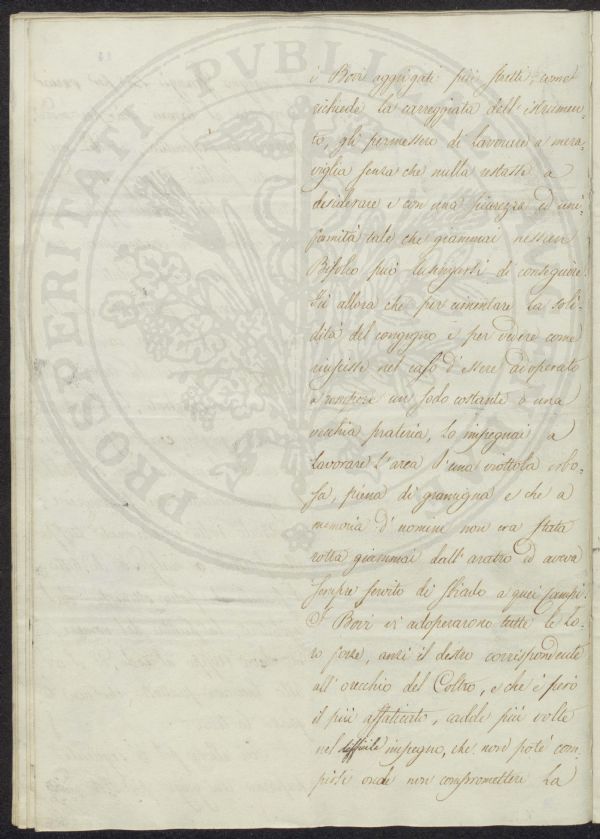 PROSPERITATI PUBLICAE
i Bovi aggiogati più stretti, come
richiede la carreggiata dell' istrumen=
to, gli permessero di lavorare a mera=
viglia senza che nulla restasse a
desiderare e con una sicurezza ed uni=
formità tale che giammai nessun
Bifolco può lusingarsi di conseguire.
Fù allora che per cimentare la soli=
dità del congegno e per vedere come
riuscisse nel caso d' essere adoperato
a rompere un sodo costante o una
vecchia prateria, lo impegnai a
lavorare l' area d' una viottola erbo=
sa, piena di gramigna e che a
memoria d' uomini non era stata
rotta giammai dall' aratro ed aveva
sempre servito di strada a quei Campi.
I Bovi vi adoperarono tutte le lo=
ro forze, anzi il destro corrispondente
all' orecchio del Coltro, e che è però
il più affaticato, cadde più volte
nel difficile impegno, che non potè com=
piersi onde non compromettere la